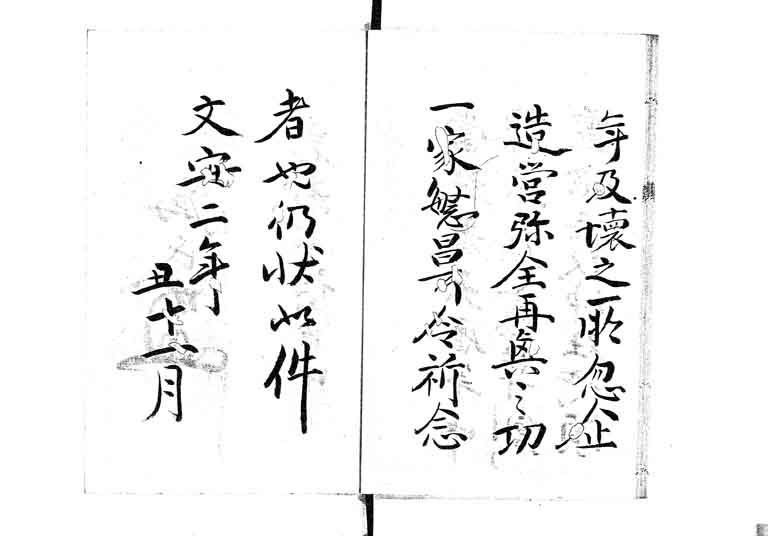 年及壊之所忽企
造営弥全再興之功
一家繁昌可令祈念
者也仍状如件
文安二年
丑十一月